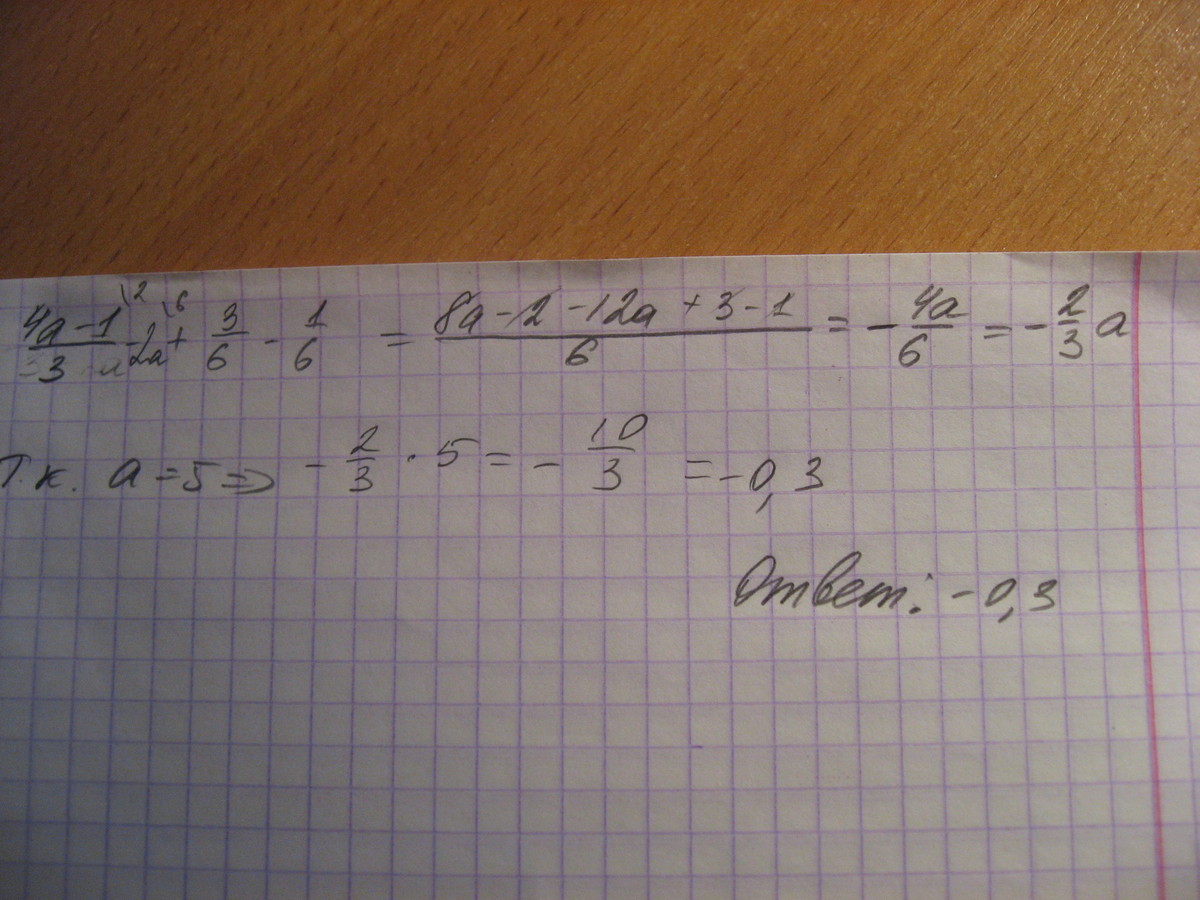 \frac{4a-1}{3}^{\2} - 2a^{\6} + \frac{3}{6} - \frac{1}{6} = \frac{8a-2-12a+3-1}{6} = -\frac{4a}{6} = -\frac{2}{3}a
Т.к. a=5 => -\frac{2}{3} · 5 = -\frac{10}{3} = -0,3
Ответ: -0,3